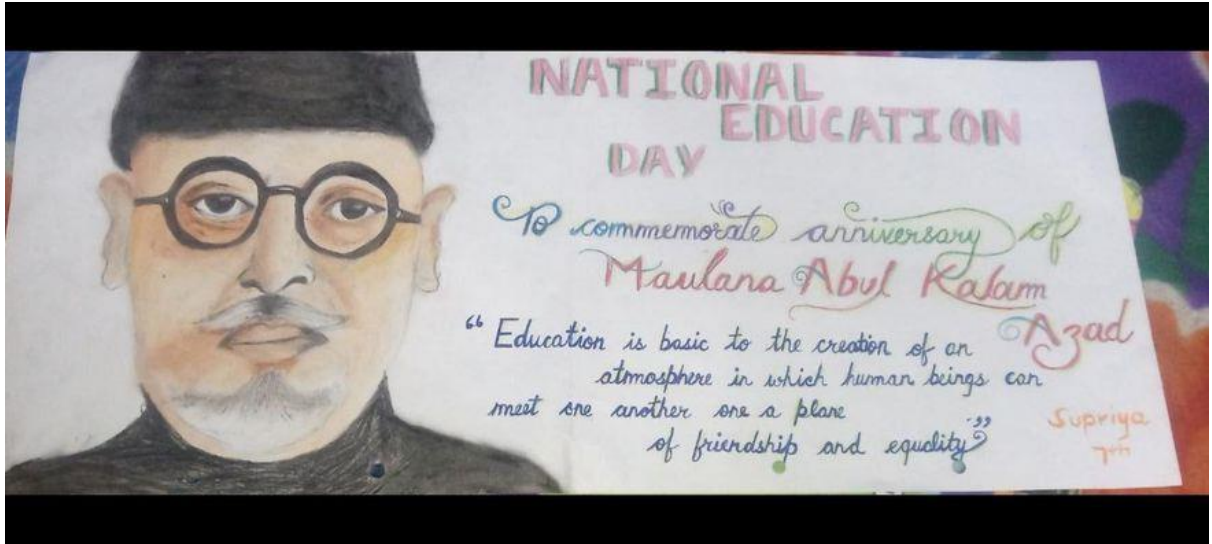 NATIONAL
EDUCATION
DAY
To commemorate anniversary of
Maulana Abul Kalam
Azad
“ Education is basic to the creation of an
atmosphere in which human beings can
meet one another one a plane
of friendship and equality”
Supriya
7th